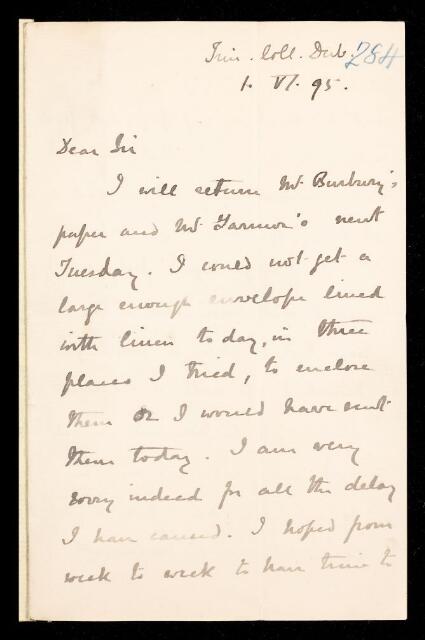 Trin. Coll. Dub. 284
1. VI. 95.
Dear Sir
I will return Mr Burbury's
paper and Mr Larmor's next
Tuesday. I could not get a
large enough envelope lined
with linen today, in three
places I tried, to enclose
them or I would have sent
them today. I am very
sorry indeed for all the delay
I have caused. I hoped from
week to week to have time to